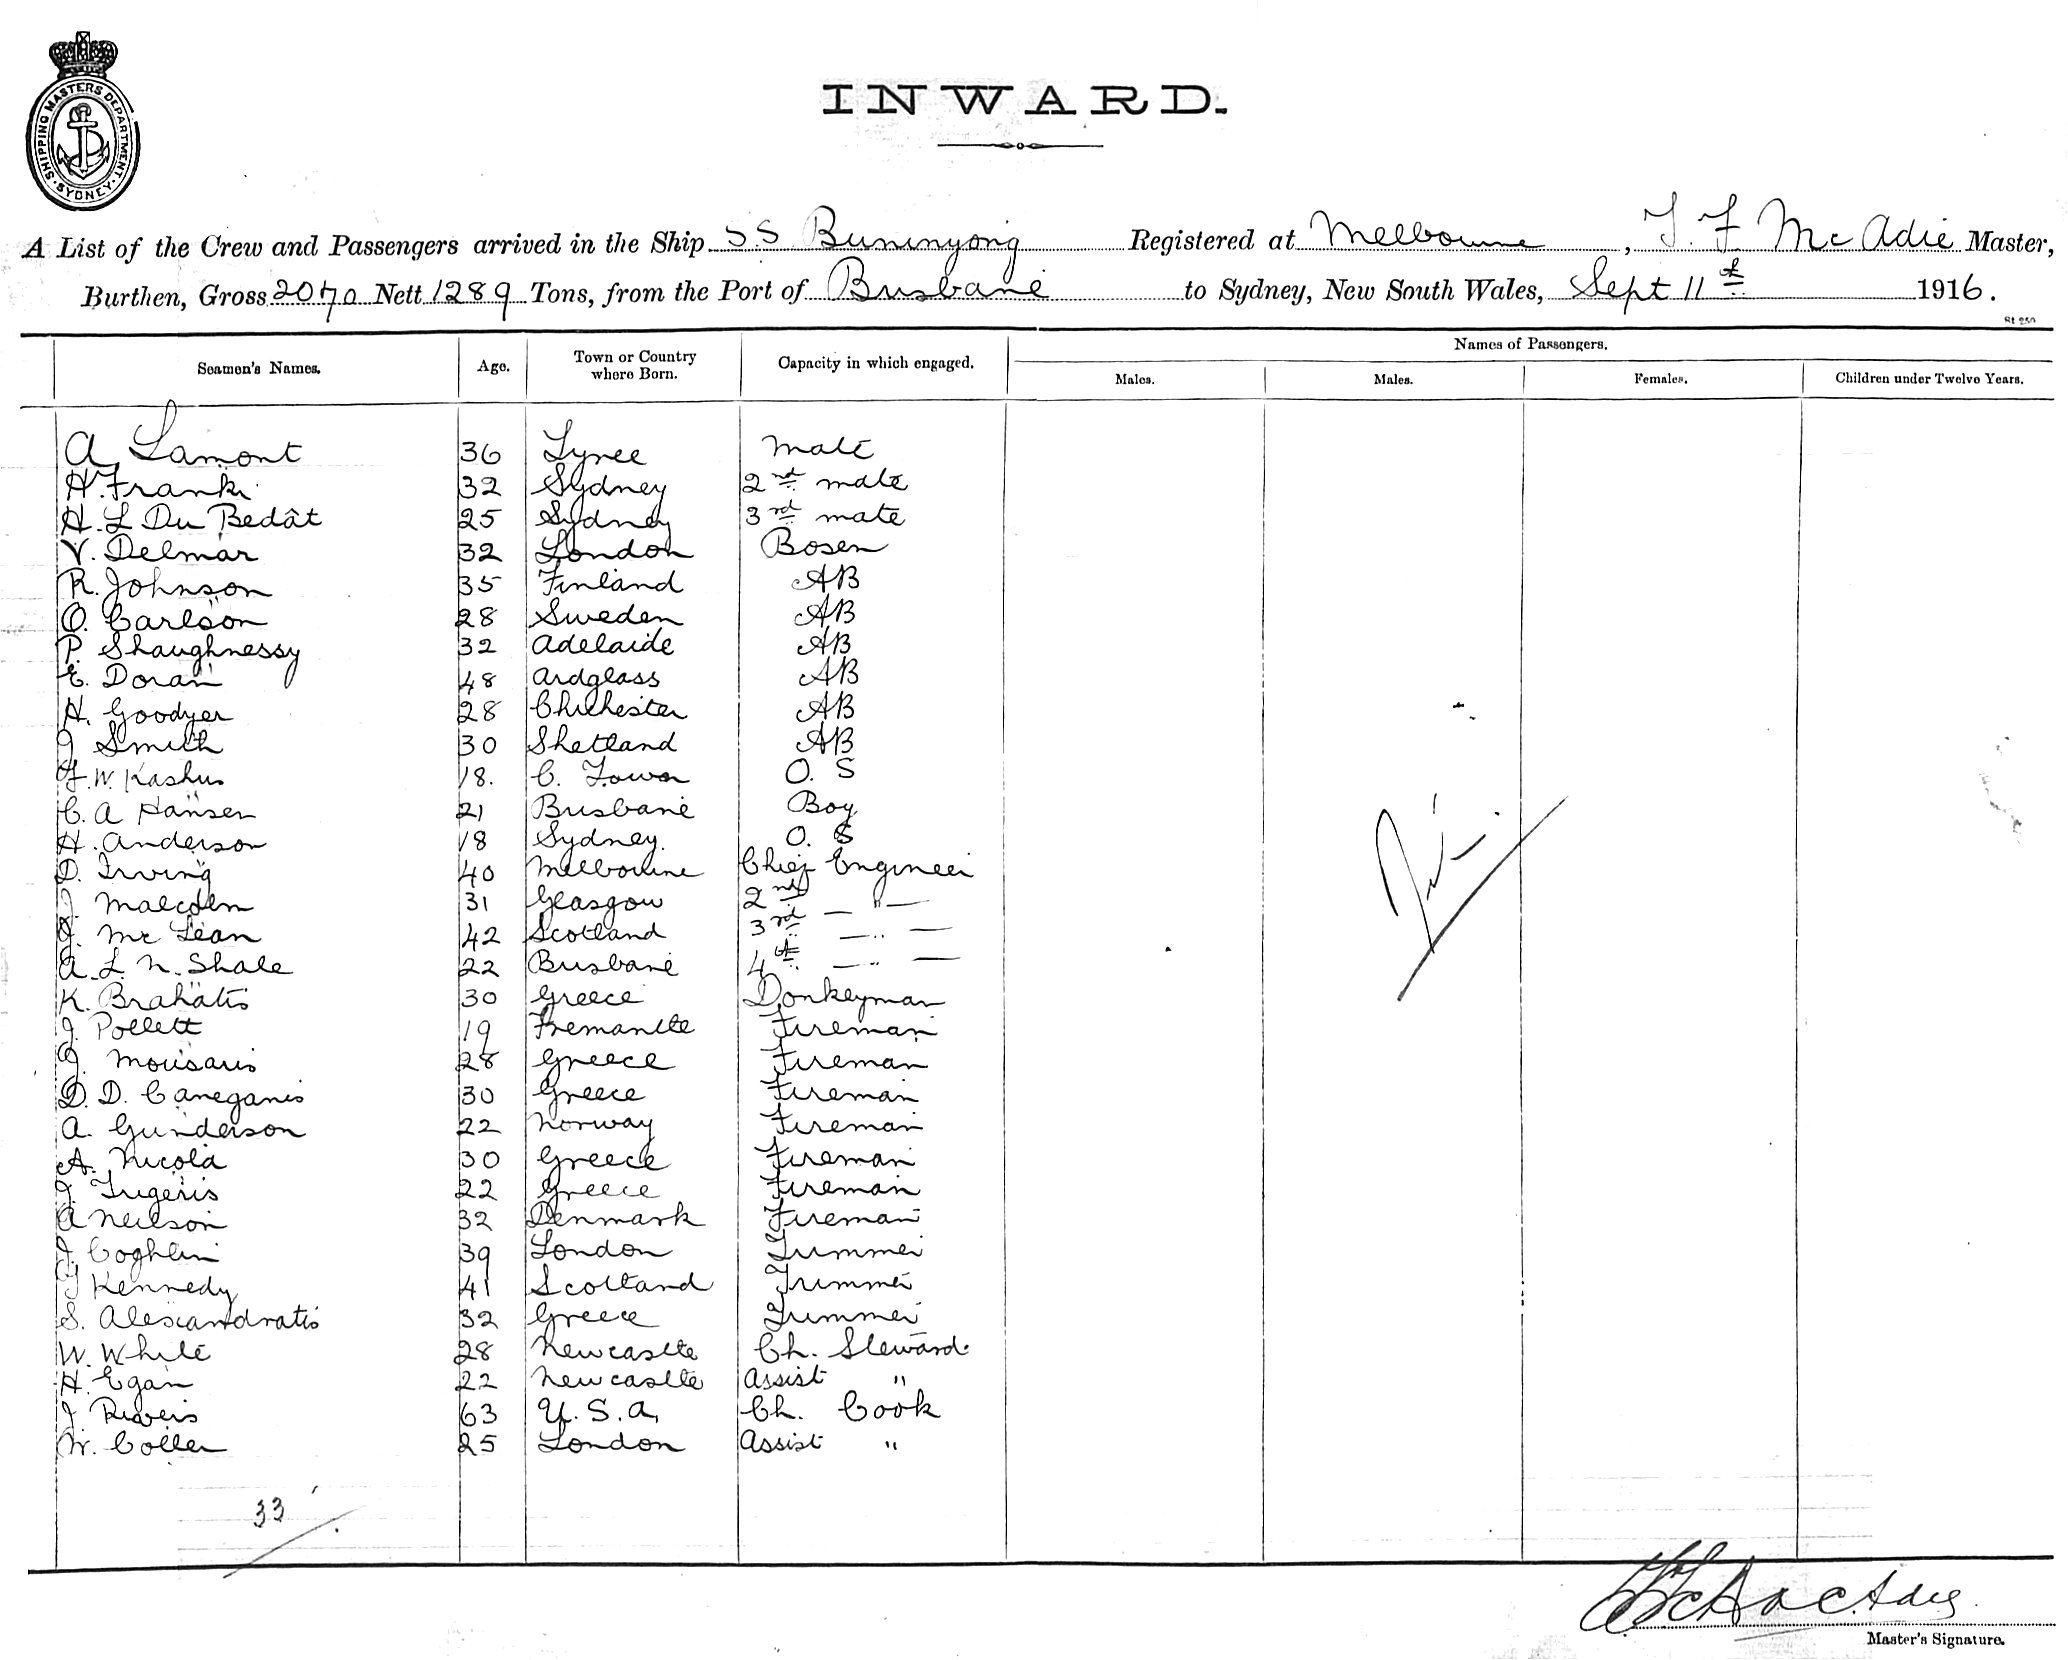 SHIPPING MASTERS DEPARTMENT. SYDNEY.
INWARD.
A List of the Crew and Passengers arrived in the Ship SS Buninyong Registered at Melbourne, T. F McAdie Master,
Burthen, Gross 2070 Nett 1289 Tons, from the Port of Brisbane to Sydney, New South Wales, Sept 11th 1916.
St 250
Names of Passengers.
Seamen's Names. Age. Town or Country where Born. Capacity in which engaged. Males. Males. Females. Children under Twelve Years.
A Lamont 36 Tyree Mate
H. Frank 32 Sydney 2nd mate
H. L Du Bedât 25 Sydney 3rd mate
V. Delmar 32 London Bosen
R. Johnson 35 Finland AB
O. Carlson 28 Sweden AB
P. Shaughnessy 32 Adelaide AB
E. Doran 48 Ardglass AB
H. Goodyer 28 Chichester AB
J Smith 30 Shetland AB
F. W. Kashus 18. C. Town O. S
C. A Hansen 21 Brisbane Boy
H. Anderson 18 Sydney. O. S
D. Irving 40 Melbourne Chief Engineer
J. Malcolm 31 Glasgow 2nd — " —
J. Mc Lean 42 Scotland 3rd — " —
A. L. N. Shale 22 Brisbane 4th — " —
K. Brahatis 30 Greece Donkeyman
J. Pollett 19 Fremantle Fireman
J. Mousaris 28 Greece Fireman
D. D. Caneganis 30 Greece Fireman
A. Gunderson 22 Norway Fireman
A. Nicola 30 Greece Fireman
J. Trigeris 22 Greece Fireman
A Neilson 32 Denmark Fireman
J. Coghlin 39 London Trimmer
J Kennedy 41 Scotland Trimmer
S. Alexandratis 32 Greece Trimmer
W. White 28 Newcastle Ch. Steward.
H. Egan 22 Newcastle Assist "
J. Rivers 63 U. S. A. Ch. Cook
W. Coller 25 London Assist "
Nil
33
T F McAdie
Master's Signature.